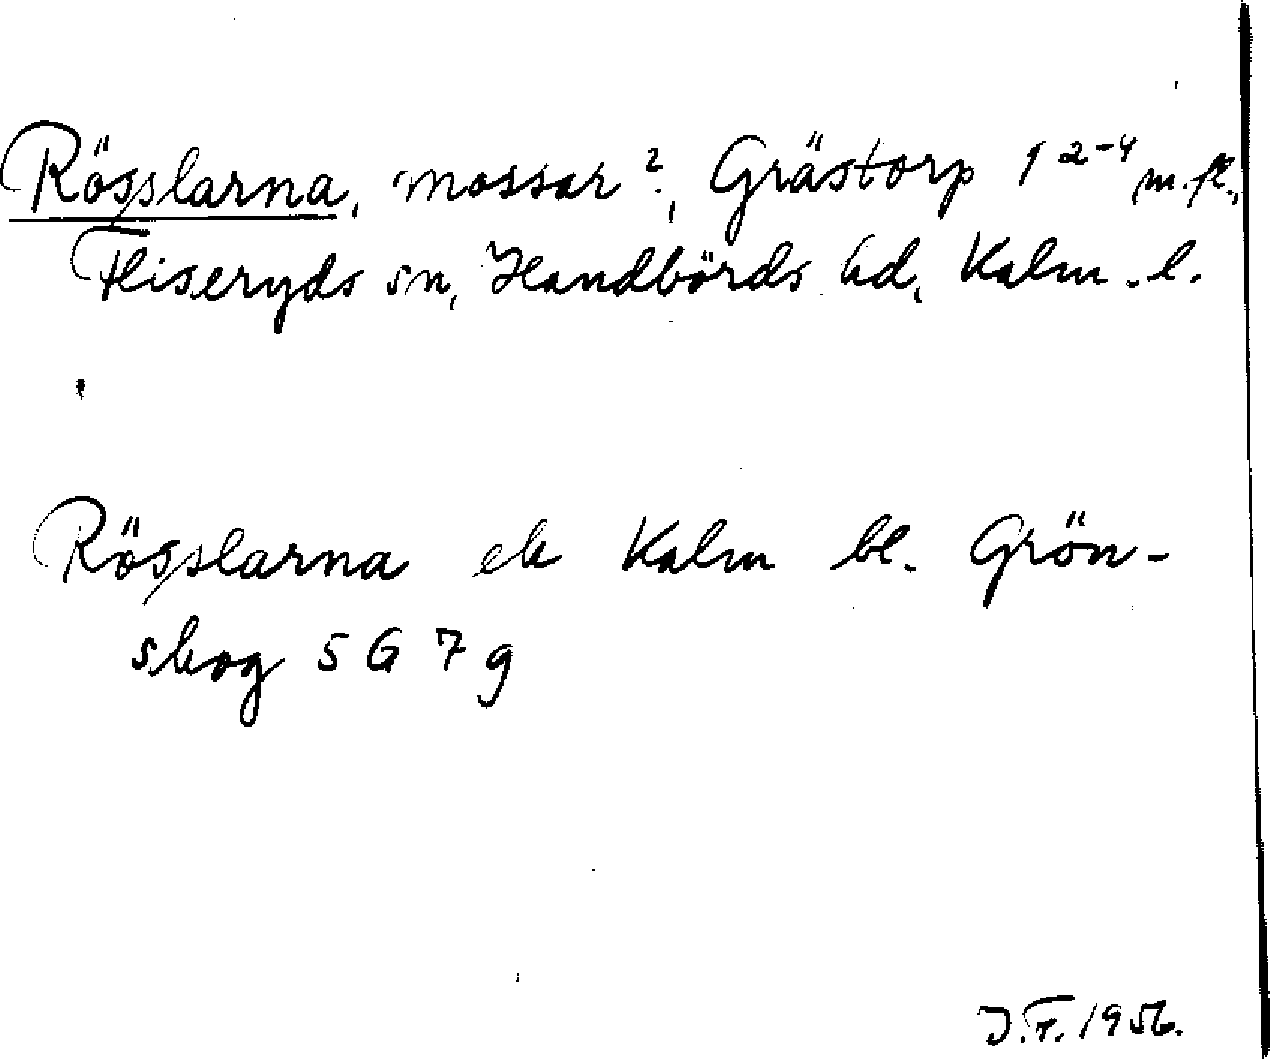 Rösslarna, mossar?, Grästorp 1 2-4 m.fl.,
Fliseryds sn, Handbörds hd, Kalm. l.
Rösslarna ek Kalm bl. Grön-
skog 5 G 7 g
J.F. 1956.